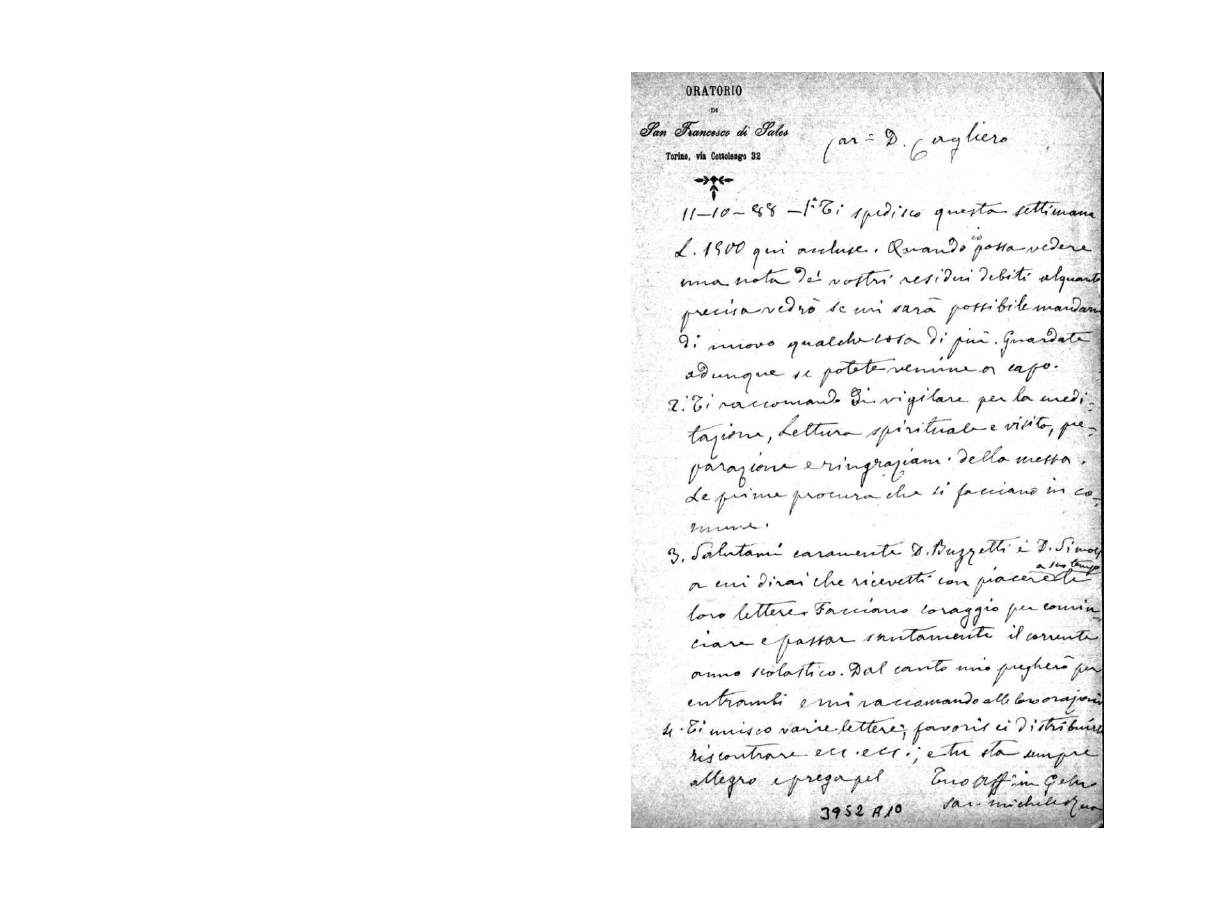 ORATORIO
DI
San Francesco di Sales
Torino, via Cottolengo 32
Car= D. Cagliero
11-10-88 - 1° Ti spedisco questa settimana
L. 1500 qui accluse. Quando io possa vedere
una nota de' vostri residui debiti alquanto
precisa vedrò se mi sarà possibile mandarvi
di nuovo qualche cosa di più. Guardate
adunque se potete venirne a capo.
2. Ti raccomando di vigilare per la medi-
tazione, lettura spirituale e visita, pre-
parazione e ringraziam. della messa.
Le prime procura che si facciano in co-
mune.
3. Salutami caramente D. Buzzetti e D.
a cui dirai che ricevetti con piacere a suo tempo le
loro lettere. Facciano coraggio per comin-
ciare e passar santamente il corrente
anno scolastico. Dal canto mio pregherò per
entrambi e mi raccomando alle loro orazioni
4. Ti unisco varie lettere; favorisci distribuire
riscontrare ecc. ecc.; e tu sta sempre
allegro e prega pel Tuo Aff.in
Sac. Michele Rua
3952 A10